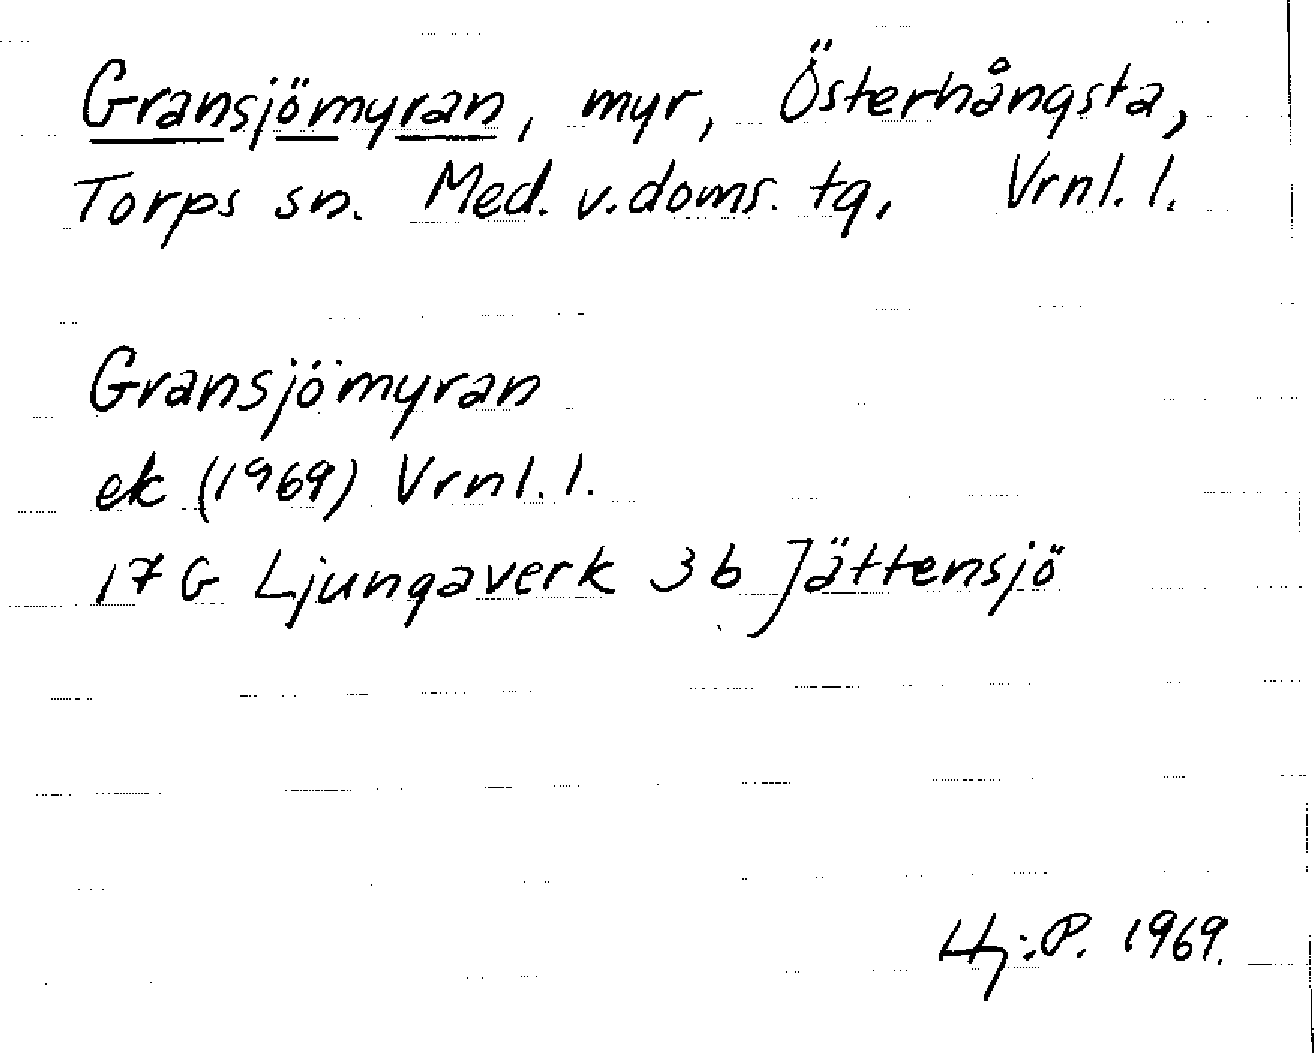 Gransjömyran, myr, Österhångsta,
Torps sn. Med. v. doms. tg, Vrnl. l.
Gransjömyran
ek (1969) Vrnl. l.
17 G Ljungaverk 3 b Jättensjö
Hj:P. 1969.